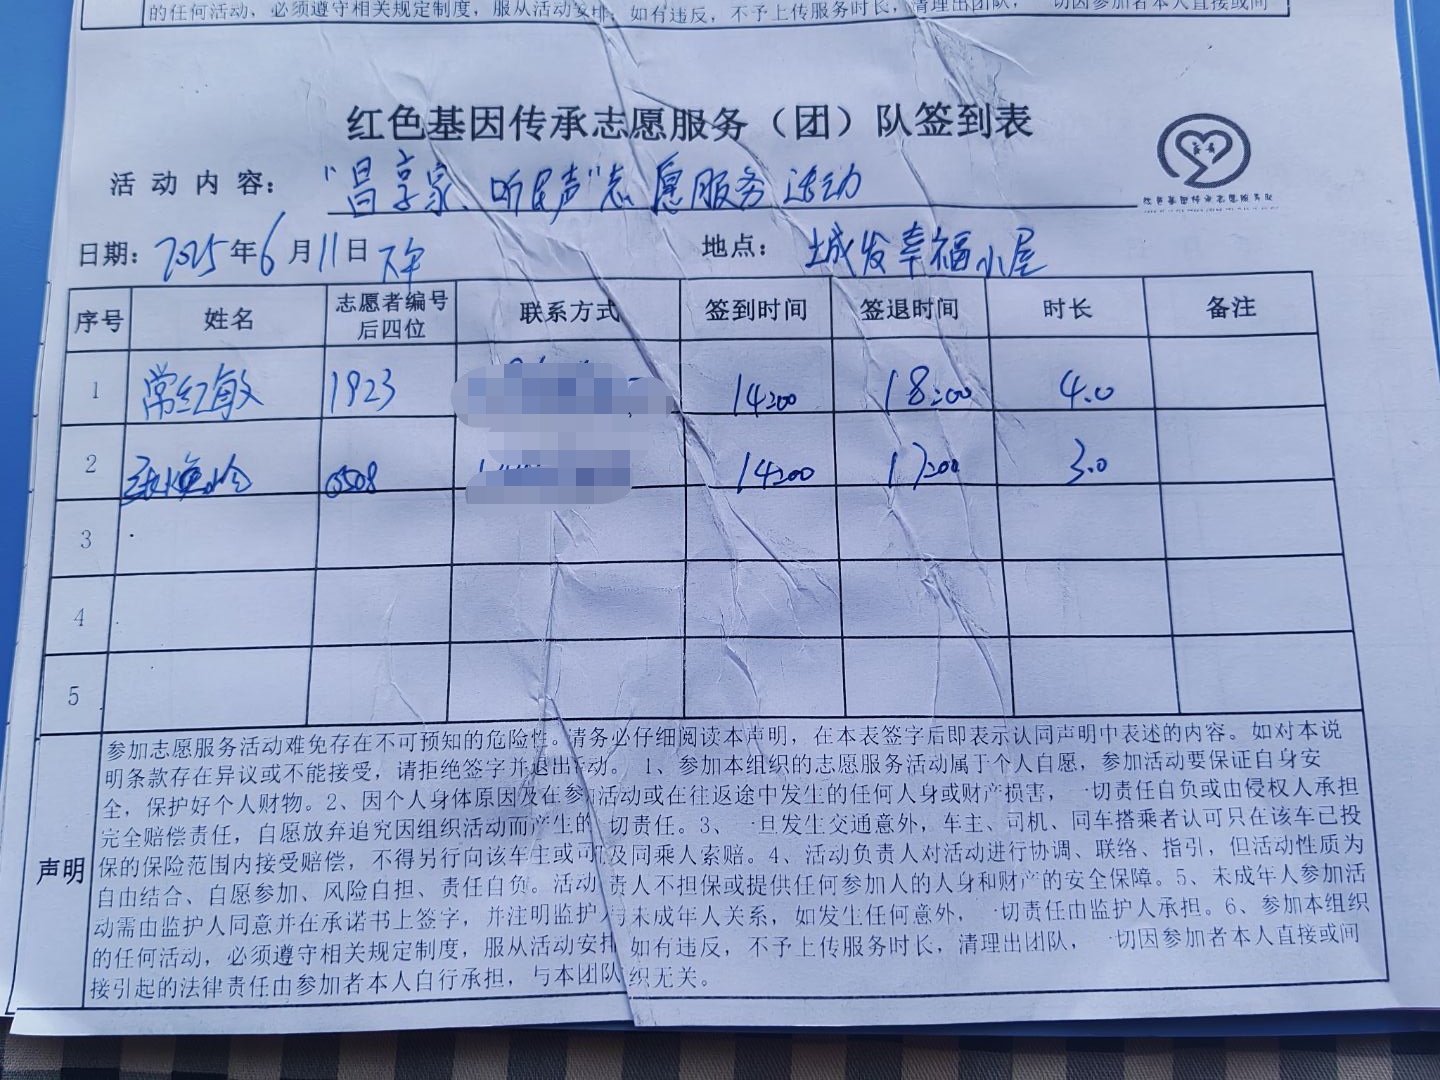 的任何活动，必须遵守相关规定制度，服从活动安排，如有违反，不予上传服务时长，清理出团队，一切因参加者本人直接或间
红色基因传承志愿服务（团）队签到表
活动内容：“昌享家、听民声”志愿服务活动
红色基因传承志愿服务队
日期：2025年6月11日 下午 地点：城发幸福小屋
序号 姓名 志愿者编号后四位 联系方式 签到时间 签退时间 时长 备注
1 常红敏 1923 14:00 18:00 4.0
2 0508 14:00 17:00 3.0
3
4
5
声明
参加志愿服务活动难免存在不可预知的危险性。请务必仔细阅读本声明，在本表签字后即表示认同声明中表述的内容。如对本说
明条款存在异议或不能接受，请拒绝签字并退出活动。 1、参加本组织的志愿服务活动属于个人自愿，参加活动要保证自身安
全，保护好个人财物。2、因个人身体原因及在参加活动或在往返途中发生的任何人身或财产损害，一切责任自负或由侵权人承担
完全赔偿责任，自愿放弃追究因组织活动而产生的一切责任。3、一旦发生交通意外，车主、司机、同车搭乘者认可只在该车已投
保的保险范围内接受赔偿，不得另行向该车主或司机及同乘人索赔。4、活动负责人对活动进行协调、联络、指引，但活动性质为
自由结合、自愿参加、风险自担、责任自负。活动负责人不担保或提供任何参加人的人身和财产的安全保障。5、未成年人参加活
动需由监护人同意并在承诺书上签字，并注明监护人与未成年人关系，如发生任何意外，一切责任由监护人承担。6、参加本组织
的任何活动，必须遵守相关规定制度，服从活动安排，如有违反，不予上传服务时长，清理出团队，一切因参加者本人直接或间
接引起的法律责任由参加者本人自行承担，与本团队组织无关。